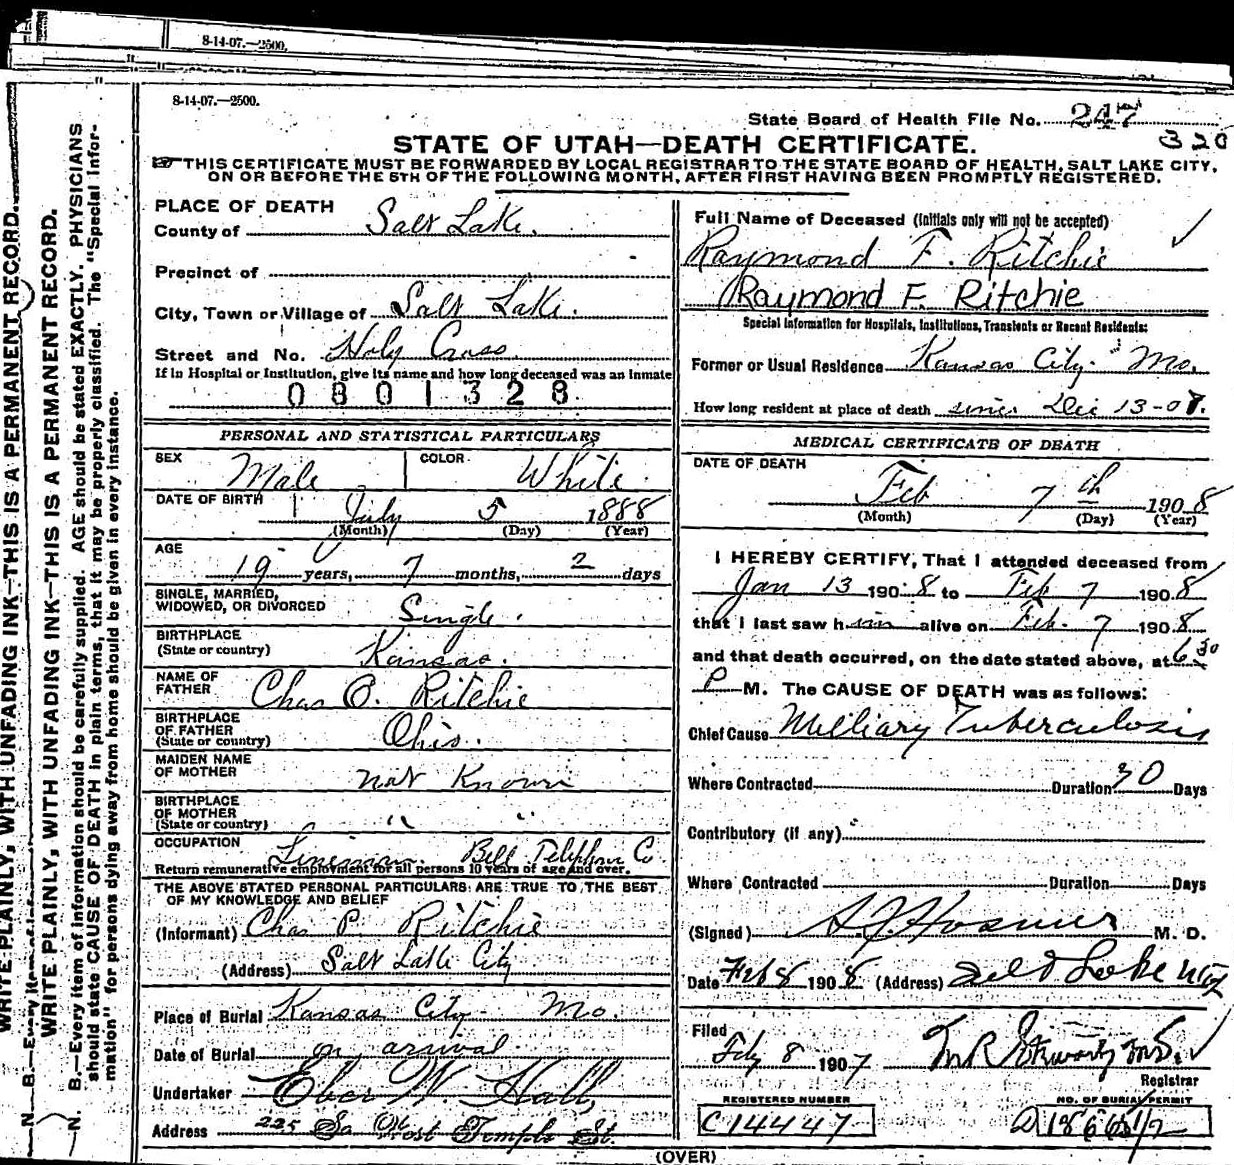 8-14-07.—2500.
8-14-07.—2500.
State Board of Health File No. 247
320
STATE OF UTAH—DEATH CERTIFICATE.
THIS CERTIFICATE MUST BE FORWARDED BY LOCAL REGISTRAR TO THE STATE BOARD OF HEALTH, SALT LAKE CITY,
ON OR BEFORE THE 5TH OF THE FOLLOWING MONTH, AFTER FIRST HAVING BEEN PROMPTLY REGISTERED.
WRITE PLAINLY, WITH UNFADING INK—THIS IS A PERMANENT RECORD.
WRITE PLAINLY, WITH UNFADING INK—THIS IS A PERMANENT RECORD.
N. B.—Every item of information should be carefully supplied. AGE should be stated EXACTLY. PHYSICIANS
should state CAUSE OF DEATH in plain terms, that it may be properly classified. The "Special Infor-
mation" for persons dying away from home should be given in every instance.
PLACE OF DEATH
County of Salt Lake.
Precinct of
City, Town or Village of Salt Lake.
Street and No. Holy Cross
If in Hospital or Institution, give its name and how long deceased was an inmate
0801328
PERSONAL AND STATISTICAL PARTICULARS
SEX Male COLOR White
DATE OF BIRTH July 5 1888
(Month) (Day) (Year)
AGE
19 years, 7 months, 2 days
SINGLE, MARRIED,
WIDOWED, OR DIVORCED Single.
BIRTHPLACE
(State or country) Kansas.
NAME OF
FATHER Chas O. Ritchie
BIRTHPLACE
OF FATHER
(State or country) Ohio.
MAIDEN NAME
OF MOTHER Not Known
BIRTHPLACE
OF MOTHER
(State or country) " "
OCCUPATION Lineman. Bell Telephone Co
Return remunerative employment for all persons 10 years of age and over.
THE ABOVE STATED PERSONAL PARTICULARS ARE TRUE TO THE BEST
OF MY KNOWLEDGE AND BELIEF
(Informant) Chas P. Ritchie
(Address) Salt Lake City
Place of Burial Kansas City Mo.
Date of Burial on arival
Undertaker Eber W. Hall,
Address 225 So West Temple St.
Full Name of Deceased (Initials only will not be accepted)
Raymond F. Ritchie
Raymond F Ritchie
Special Information for Hospitals, Institutions, Transients or Recent Residents:
Former or Usual Residence Kansas City Mo.
How long resident at place of death since Dec 13-07.
MEDICAL CERTIFICATE OF DEATH
DATE OF DEATH
Feb 7th 1908
(Month) (Day) (Year)
I HEREBY CERTIFY, That I attended deceased from
Jan 13 1908 to Feb 7 1908
that I last saw him alive on Feb. 7 1908
and that death occurred, on the date stated above, at 6 30
P M. The CAUSE OF DEATH was as follows:
Chief Cause Milliary Tuberculosis
Where Contracted Duration 30 Days
Contributory (if any)
Where Contracted Duration Days
(Signed) A. J. Hosmer M. D.
Date Feb 8 1908 (Address) Salt Lake City
Filed
Feby 8 1907 Registrar
REGISTERED NUMBER
C14447
NO. OF BURIAL PERMIT
(OVER)